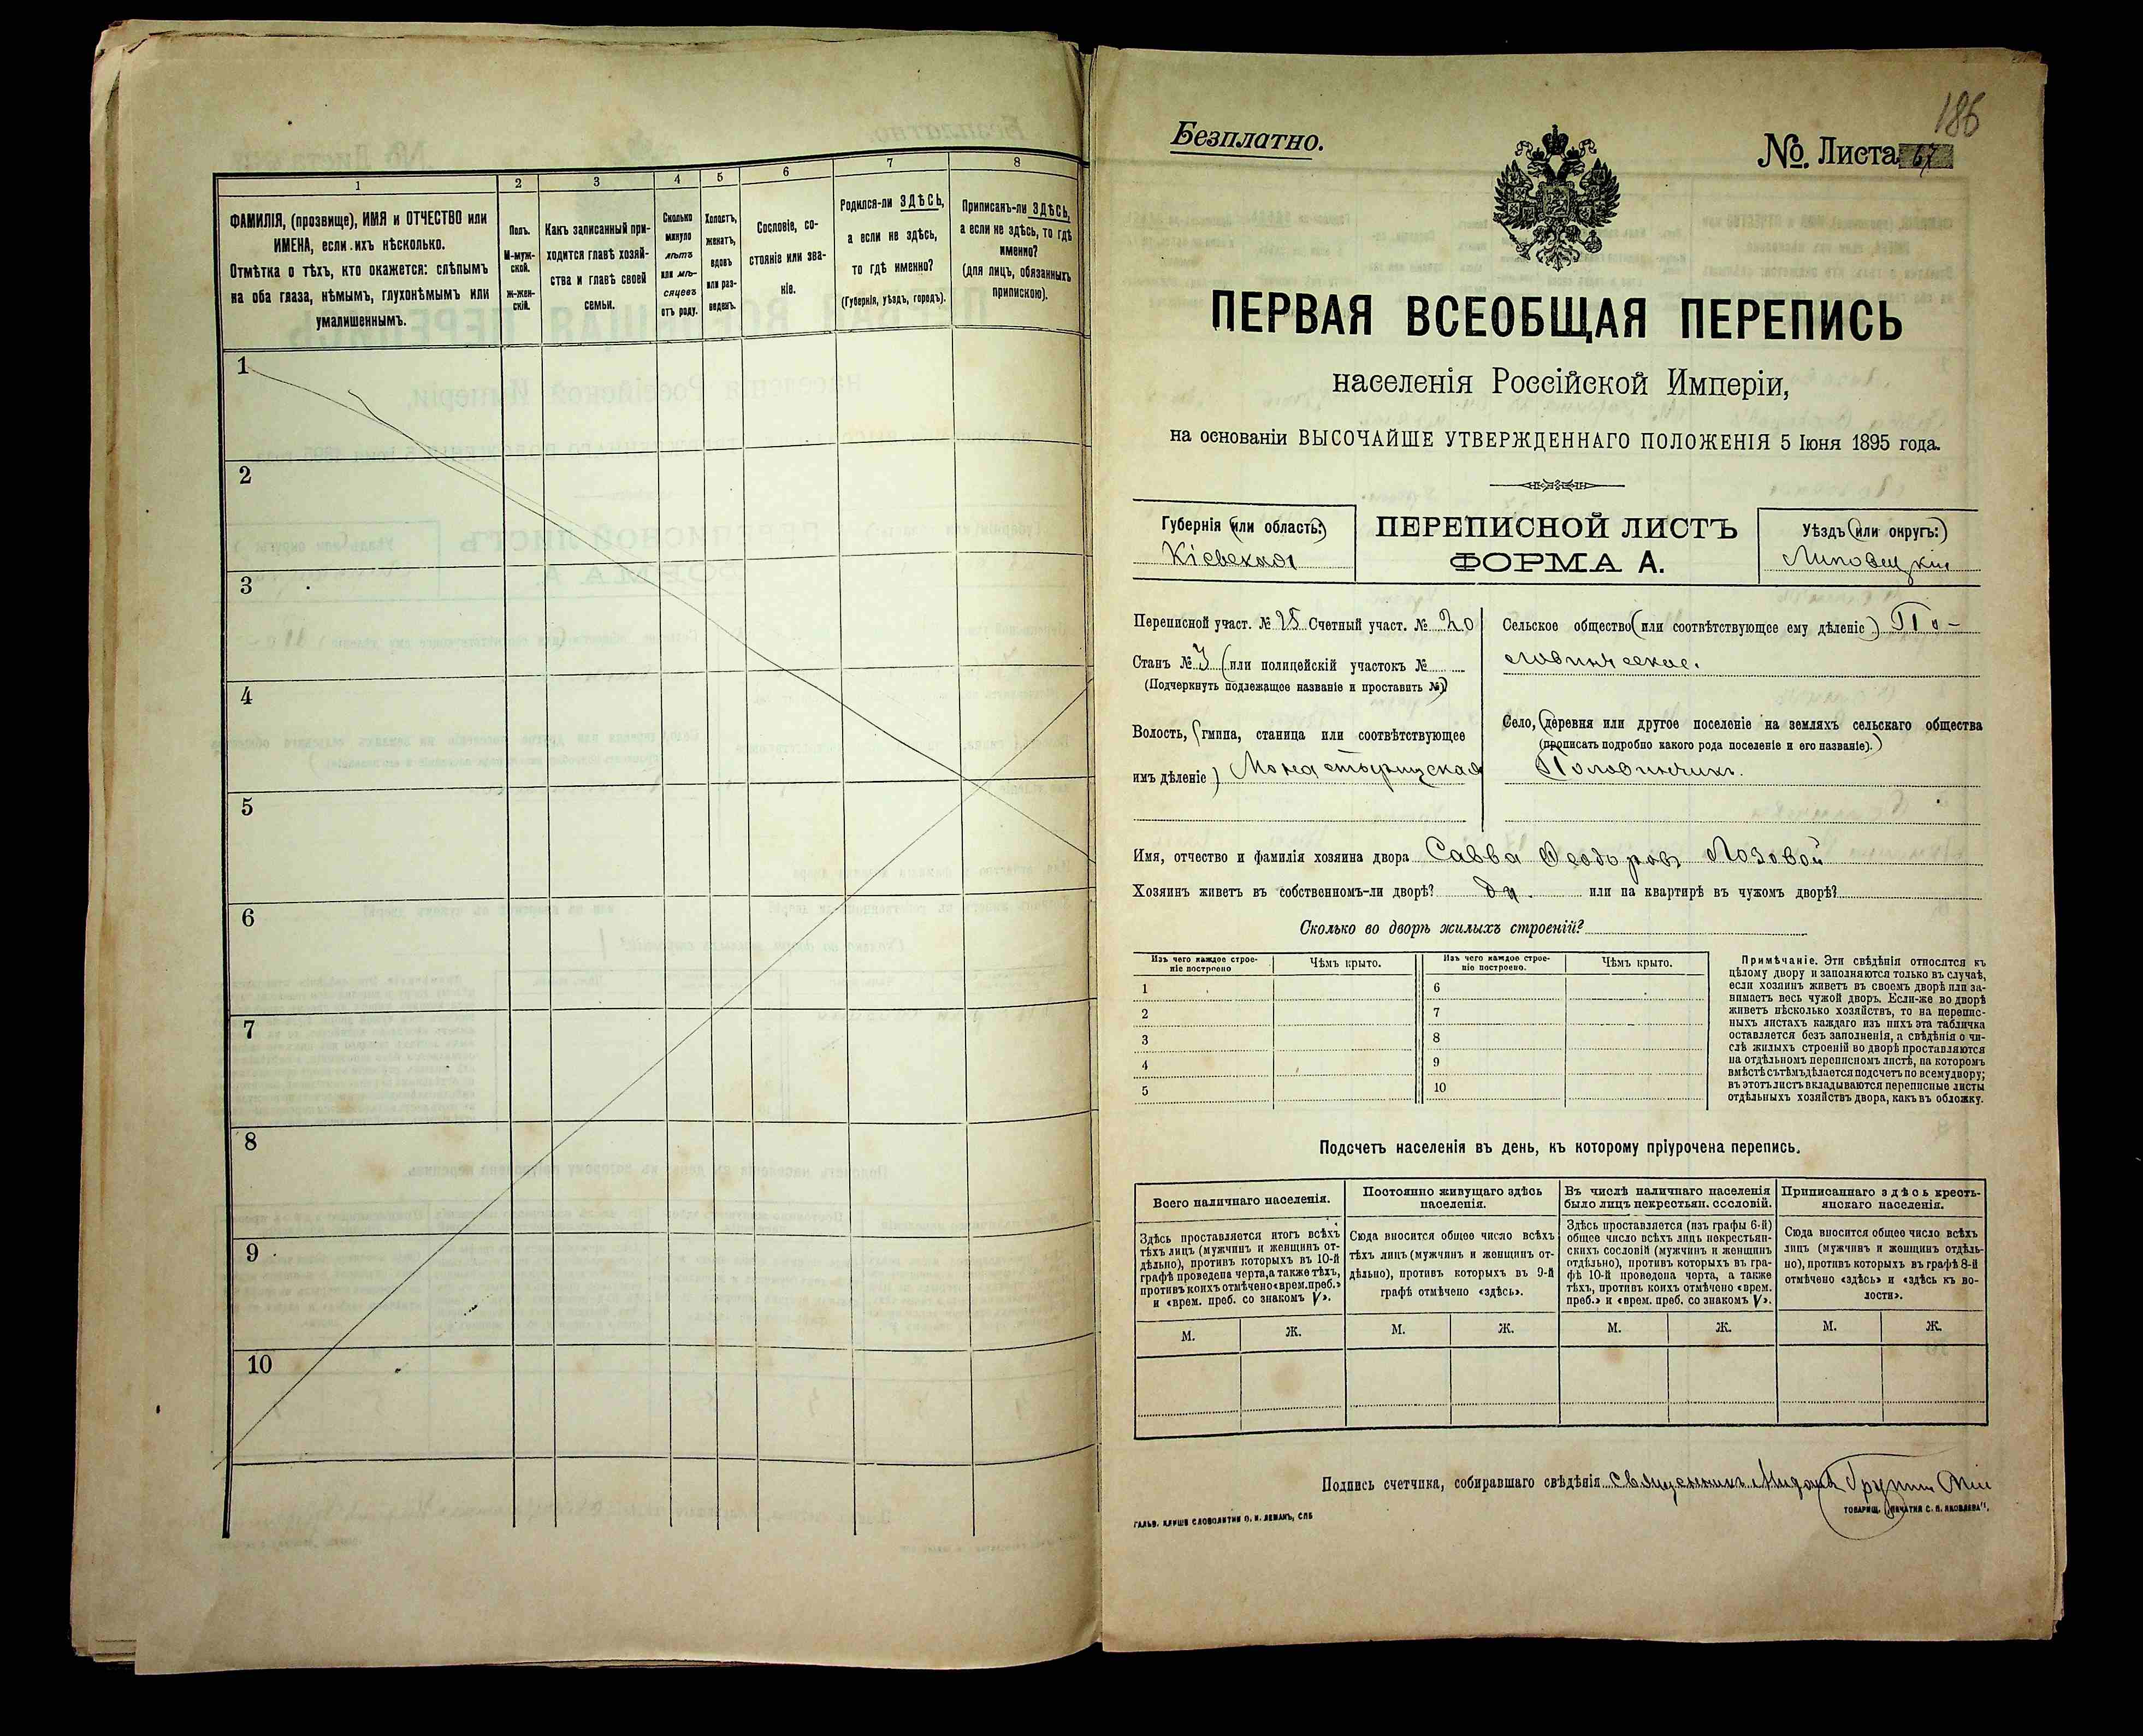 1
2
3
4
5
6
7
8
ФАМИЛІЯ, (прозвище), ИМЯ и ОТЧЕСТВО или
ИМЕНА, если их нѣсколько.
Отмѣтка о тѣхъ, кто окажется: слѣпымъ
на оба глаза, нѣмымъ, глухонѣмымъ или
умалишеннымъ.
Полъ.
М-муж-
ской.
Ж-жен-
скій.
Какъ записанный при-
ходится главѣ хозяй-
ства и главѣ своей
семьи.
Сколько
минуло
лѣтъ
или мѣ-
сяцевъ
отъ роду.
Холостъ,
женатъ,
вдовъ
или раз-
веденъ.
Сословіе, со-
стояніе или зва-
ніе.
Родился-ли ЗДѢСЬ,
а если не здѣсь,
то гдѣ именно?
(Губернія, уѣздъ, городъ).
Приписанъ-ли ЗДѢСЬ,
а если не здѣсь, то гдѣ
именно?
(для лицъ, обязанныхъ
припискою).
1
2
3
4
5
6
7
8
9
10
186
Безплатно.
№. Листа 67
ПЕРВАЯ ВСЕОБЩАЯ ПЕРЕПИСЬ
населенія Россійской Имперіи,
на основаніи ВЫСОЧАЙШЕ УТВЕРЖДЕННАГО ПОЛОЖЕНІЯ 5 Іюня 1895 года.
Губернія (или область:)
Кіевская
ПЕРЕПИСНОЙ ЛИСТЪ
ФОРМА А.
Уѣздъ (или округъ:)
Липовецкій
Переписной участ. № 25 Счетный участ. № 20
Станъ № 3 (или полицейскій участокъ №
(Подчеркнуть подлежащее названіе и проставить №)
Волость, (гмина, станица или соотвѣтствующее
имъ дѣленіе) Монастырищская
Сельское общество (или соотвѣтствующее ему дѣленіе) По-
ловинческое.
Село, (деревня или другое поселеніе на земляхъ сельскаго общества
(прописать подробно какого рода поселеніе и его названіе).)
Половинчикъ.
Имя, отчество и фамилія хозяина двора Савва Ѳеодоровъ Лозовой
Хозяинъ живетъ въ собственномъ-ли дворѣ? да. или на квартирѣ въ чужомъ дворѣ?
Сколько во дворѣ жилыхъ строеній?
Изъ чего каждое строе-
ніе построено
Чѣмъ крыто.
Изъ чего каждое строе-
ніе построено.
Чѣмъ крыто.
1
2
3
4
5
6
7
8
9
10
Примѣчаніе. Эти свѣдѣнія относятся къ
цѣлому двору и заполняются только въ случаѣ,
если хозяинъ живетъ въ своемъ дворѣ или за-
нимаетъ весь чужой дворъ. Если-же во дворѣ
живетъ нѣсколько хозяйствъ, то на перепис-
ныхъ листахъ каждаго изъ нихъ эта табличка
оставляется безъ заполненія, а свѣдѣнія о чи-
слѣ жилыхъ строеній во дворѣ проставляются
на отдѣльномъ переписномъ листѣ, на которомъ
вмѣстѣ съ тѣмъ дѣлается подсчетъ по всему двору;
въ этотъ листъ вкладываются переписные листы
отдѣльныхъ хозяйствъ двора, какъ въ обложку.
Подсчетъ населенія въ день, къ которому пріурочена перепись.
Всего наличнаго населенія.
Постоянно живущаго здѣсь
населенія.
Въ числѣ наличнаго населенія
было лицъ некрестьян. сословій.
Приписаннаго здѣсь кресть-
янскаго населенія.
Здѣсь проставляется итогъ всѣхъ
тѣхъ лицъ (мужчинъ и женщинъ от-
дѣльно), противъ которыхъ въ 10-й
графѣ проведена черта, а также тѣхъ,
противъ коихъ отмѣчено «врем. преб.»
и «врем. преб. со знакомъ V».
Сюда вносится общее число всѣхъ
тѣхъ лицъ (мужчинъ и женщинъ от-
дѣльно), противъ которыхъ въ 9-й
графѣ отмѣчено «здѣсь».
Здѣсь проставляется (изъ графы 6-й)
общее число всѣхъ лицъ некрестьян-
скихъ сословій (мужчинъ и женщинъ
отдѣльно), противъ которыхъ въ гра-
фѣ 10-й проведена черта, а также
тѣхъ, противъ коихъ отмѣчено «врем.
преб.» и «врем. преб. со знакомъ V».
Сюда вносится общее число всѣхъ
лицъ (мужчинъ и женщинъ отдѣль-
но), противъ которыхъ въ графѣ 8-й
отмѣчено «здѣсь» и «здѣсь къ во-
лости».
М.
Ж.
М.
Ж.
М.
Ж.
М.
Ж.
Подпись счетчика, собиравшаго свѣдѣнія Священникъ
ГАЛЬВ. КЛИШЕ СЛОВОЛИТНИ О. И. ЛЕМАНЪ, СПБ
ТОВАРИЩ. „ПЕЧАТНЯ С. П. ЯКОВЛЕВА“.